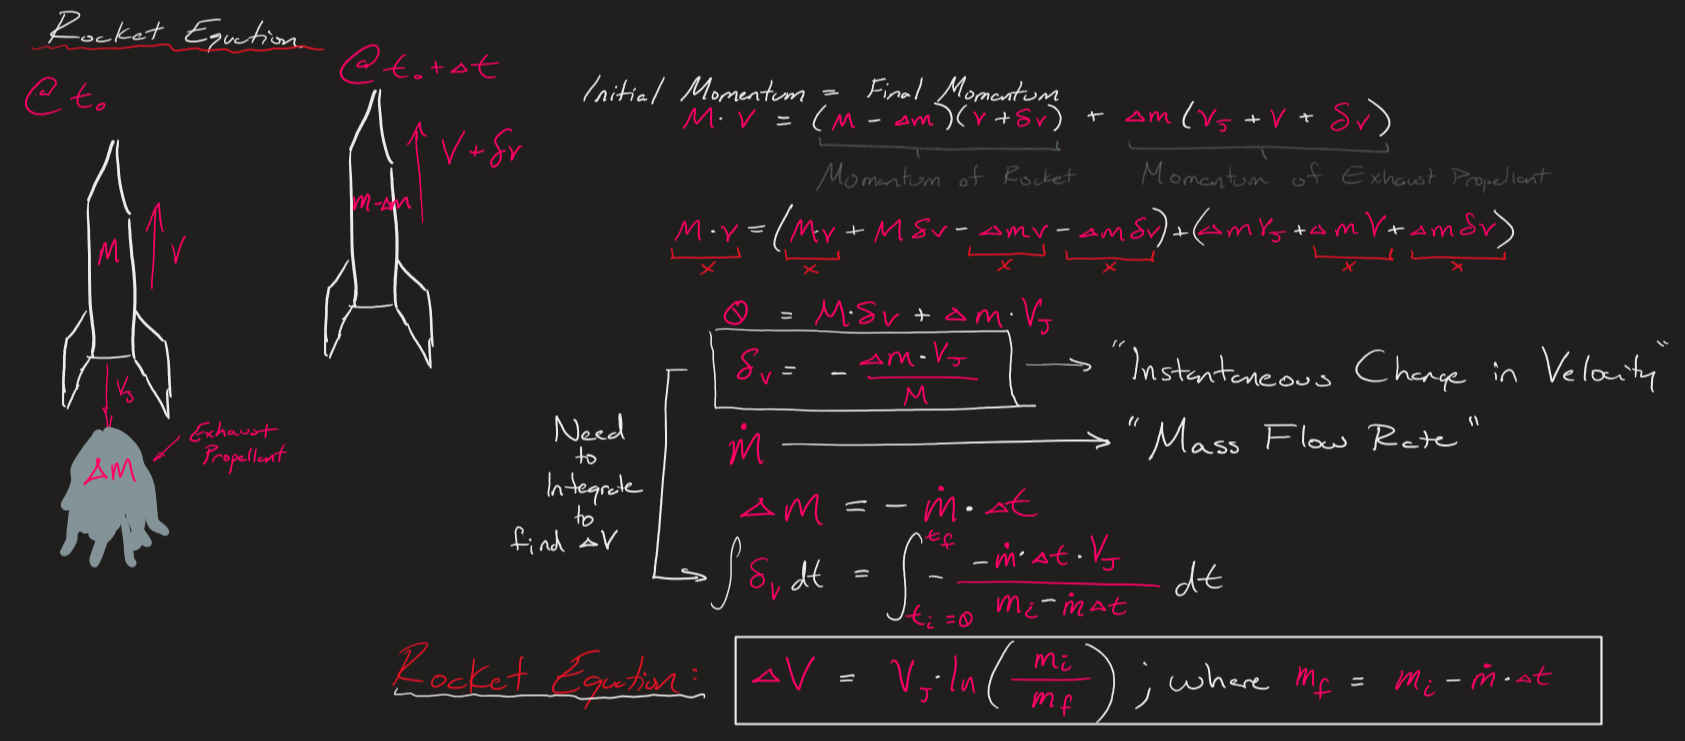 Rocket Equation
@ t₀
@ t₀ + Δt
M
V
V + δv
m - Δm
V_J
Exhaust
Propellant
ΔM
Initial Momentum = Final Momentum
M · V = (M - Δm)(V + δv) + Δm (V_J + V + δv)
Momentum of Rocket
Momentum of Exhaust Propellant
M · v = (M·v + M δv - Δmv - Δm δv) + (Δm V_J + Δm V + Δm δv)
x x x x x x
0 = M·δv + Δm · V_J
δv = - Δm · V_J / M
"Instantaneous Change in Velocity"
ṁ
"Mass Flow Rate"
Need
to
Integrate
to
find ΔV
ΔM = - ṁ · Δt
∫ δv dt = ∫_{tᵢ=0}^{t_f} - -ṁ · Δt · V_J / mᵢ - ṁΔt dt
Rocket Equation:
ΔV = V_J · ln(mᵢ / m_f) ; where m_f = mᵢ - ṁ · Δt